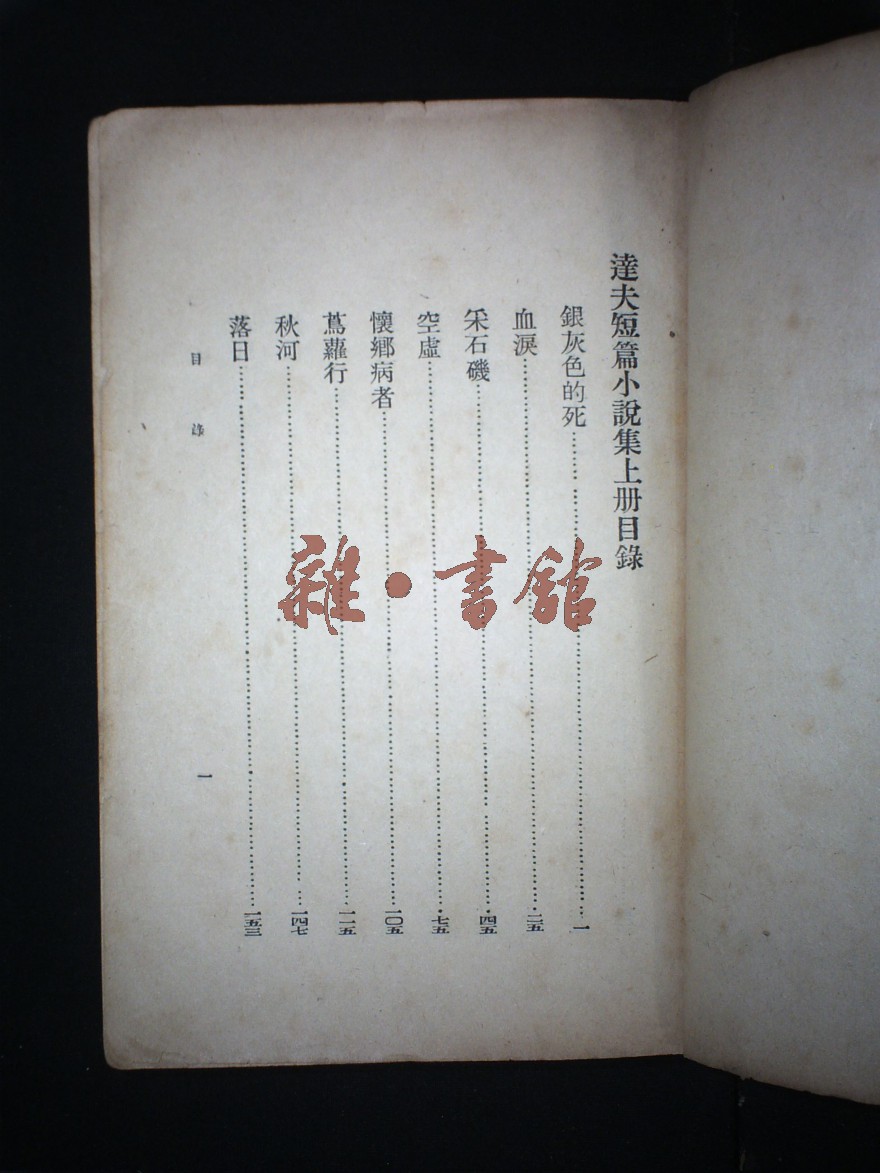 達夫短篇小說集上册目錄
銀灰色的死……一
血淚……二五
采石磯……四五
空虛……七五
懷鄉病者……一〇五
蔦蘿行……一一五
秋河……一四七
落日……一五三
目錄 一
雜•書舘